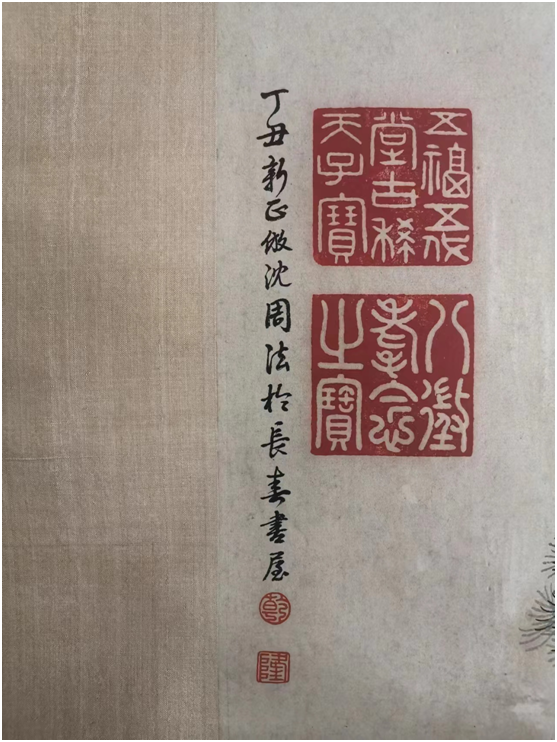 五福五代
堂古稀
天子寶
八徵
耄念
之寶
丁丑新正倣沈周法於長春書屋
乾
隆